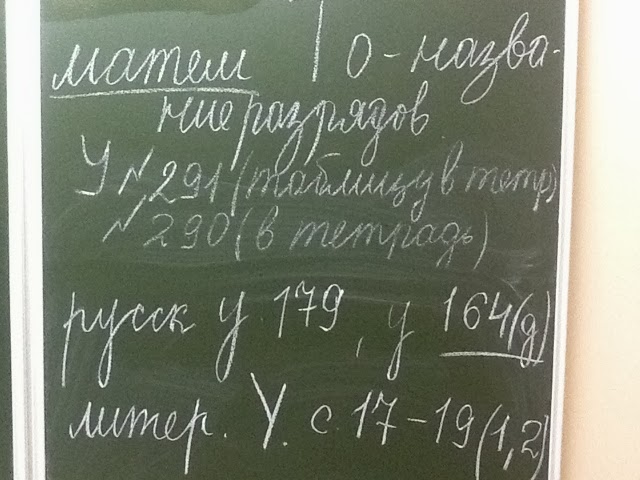 матем | о - назва-
ние разрядов
У № 291 (таблицу в тетр)
№ 290 (в тетрадь)
русск у. 179, у 164(д)
литер. У. с. 17 - 19 (1,2)